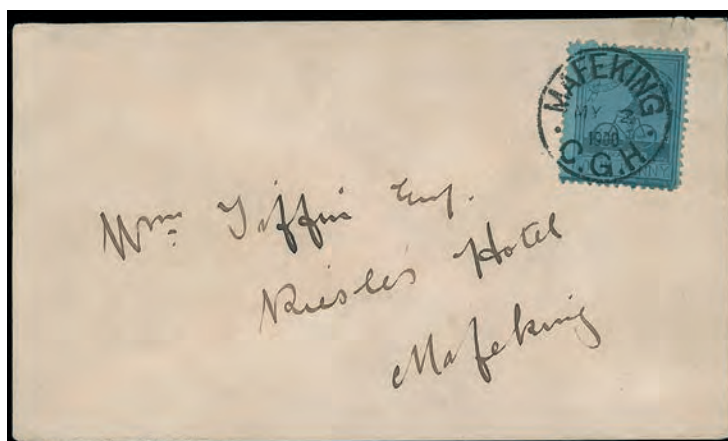 MAFEKING
MY 2
1900
C.G.H.
Wm. Tiffin Esq.
Riesles Hotel
Mafeking